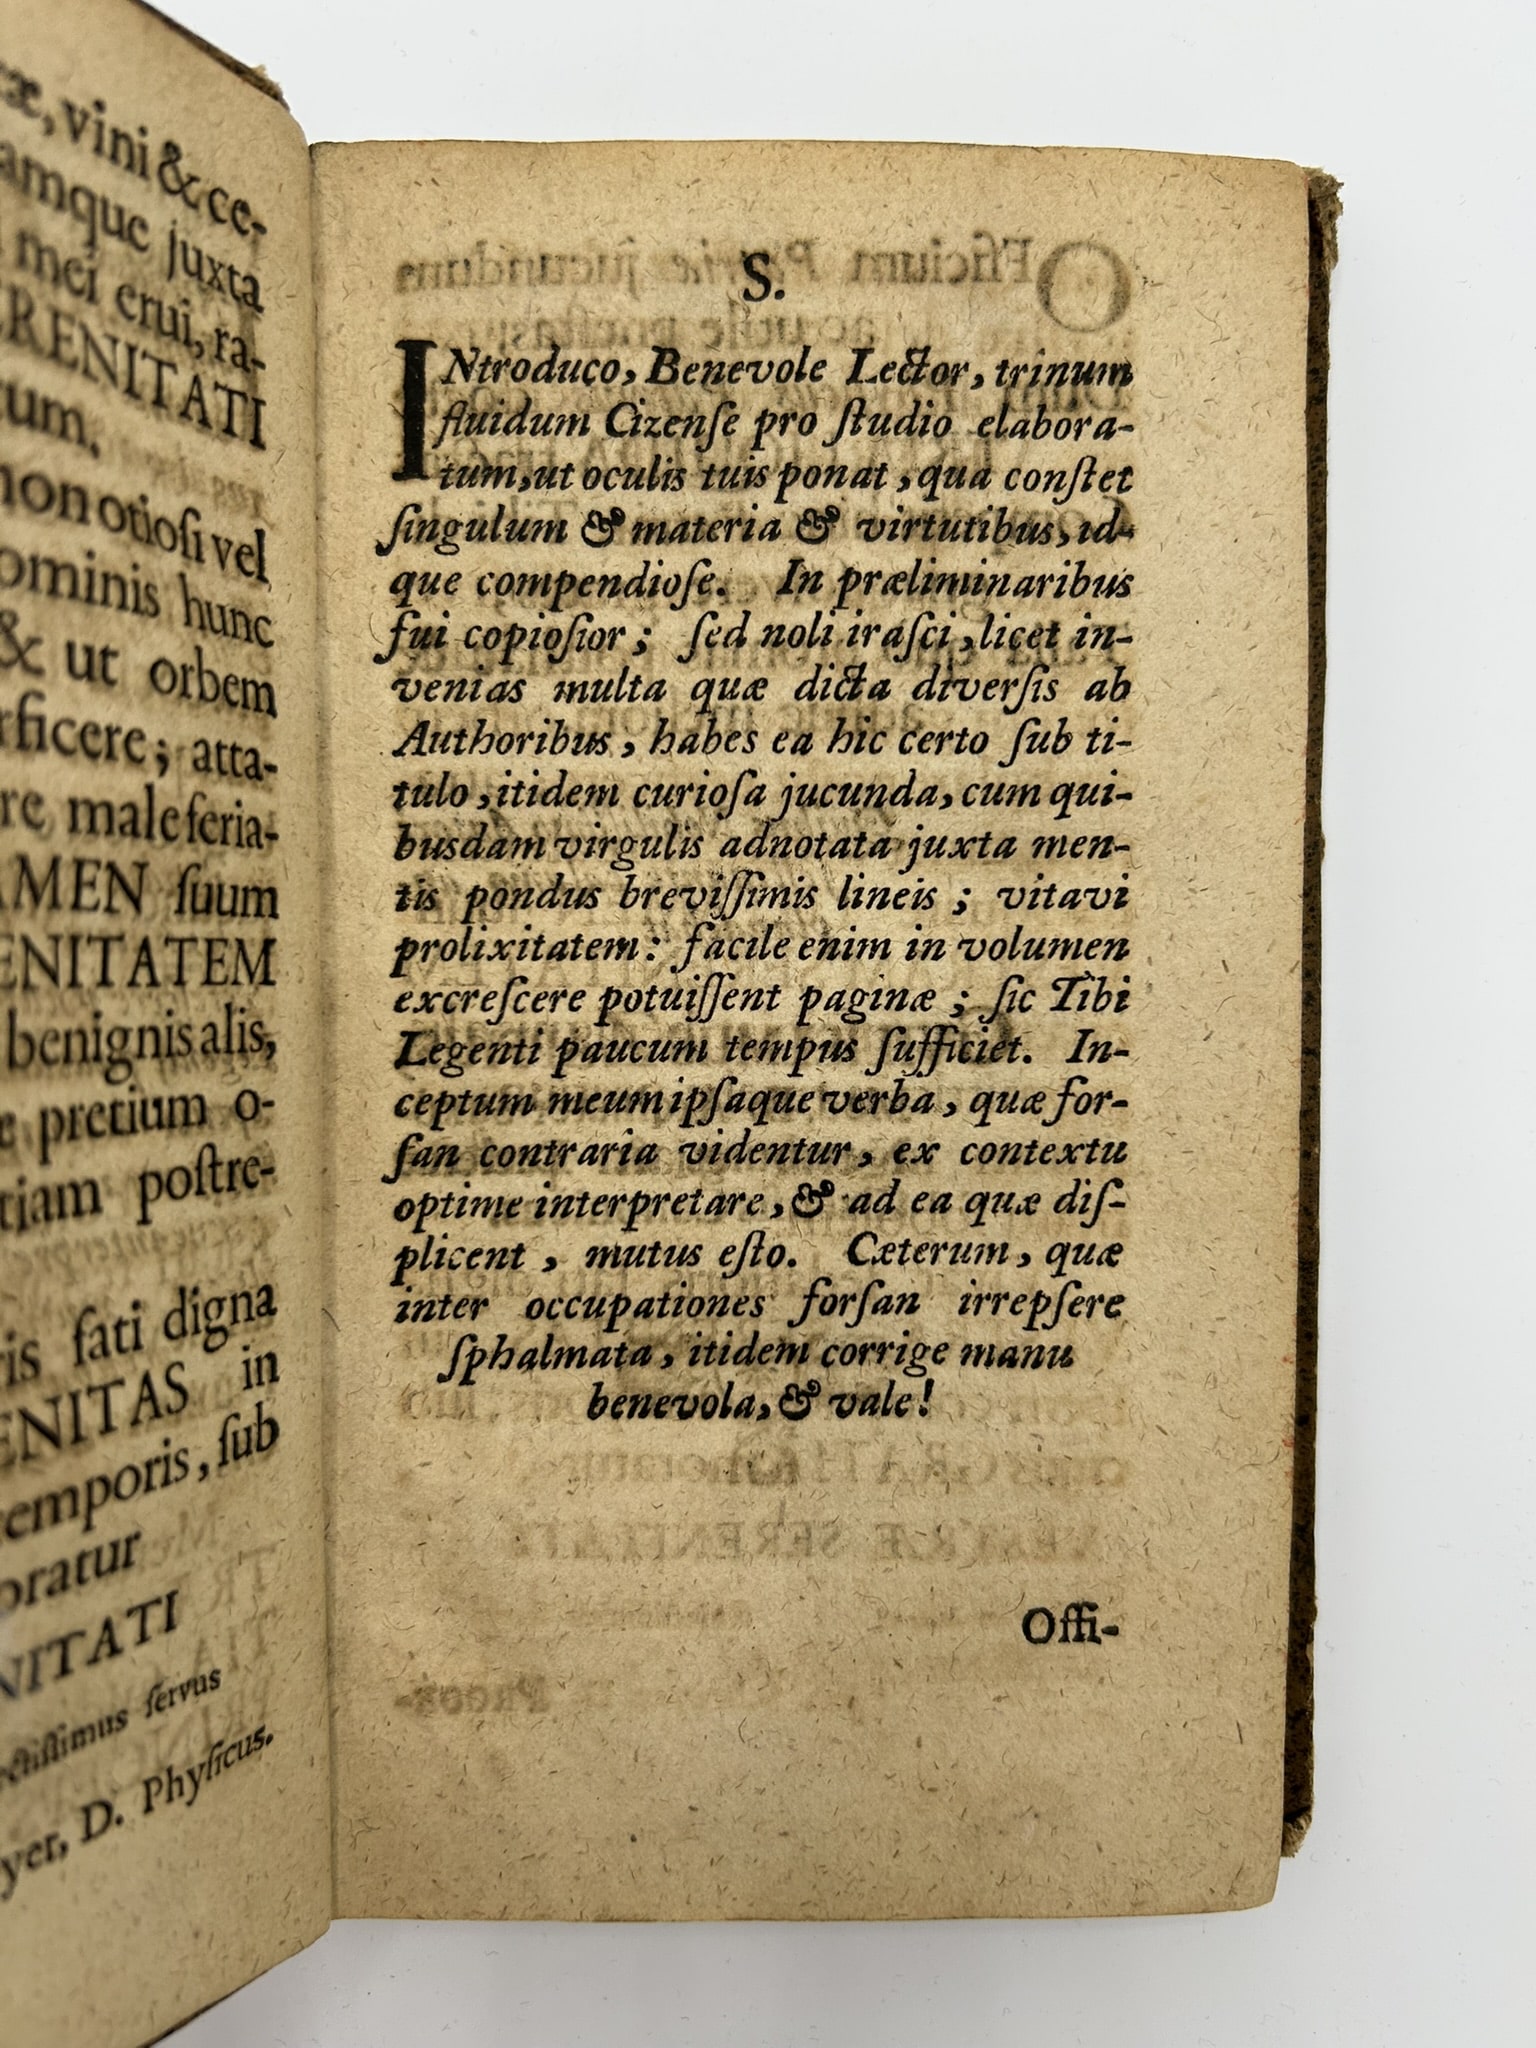 æ, vini & ce-
amque juxta
mei erui, ra-
RENITATI
tum,
non otioſi vel
ominis hunc
& ut orbem
rficere; atta-
re maleferia-
AMEN ſuum
ENITATEM
benignis alis,
e pretium o-
tiam poſtre-
ris fati digna
ENITAS in
temporis, ſub
oratur
NITATI
ectiſſimus ſervus
yer, D. Phyſicus.
S.
INtroduco, Benevole Lector, trinum
fluidum Cizenſe pro ſtudio elabora-
tum, ut oculis tuis ponat, qua conſtet
ſingulum & materia & virtutibus, id-
que compendioſe. In præliminaribus
fui copioſior; ſed noli iraſci, licet in-
venias multa quæ dicta diverſis ab
Authoribus, habes ea hic certo ſub ti-
tulo, itidem curioſa jucunda, cum qui-
busdam virgulis adnotata juxta men-
tis pondus breviſſimis lineis; vitavi
prolixitatem: facile enim in volumen
excreſcere potuiſſent paginæ; ſic Tibi
Legenti paucum tempus ſufficiet. In-
ceptum meum ipſaque verba, quæ for-
ſan contraria videntur, ex contextu
optime interpretare, & ad ea quæ diſ-
plicent, mutus eſto. Cæterum, quæ
inter occupationes forſan irrepſere
ſphalmata, itidem corrige manu
benevola, & vale!
Offi-